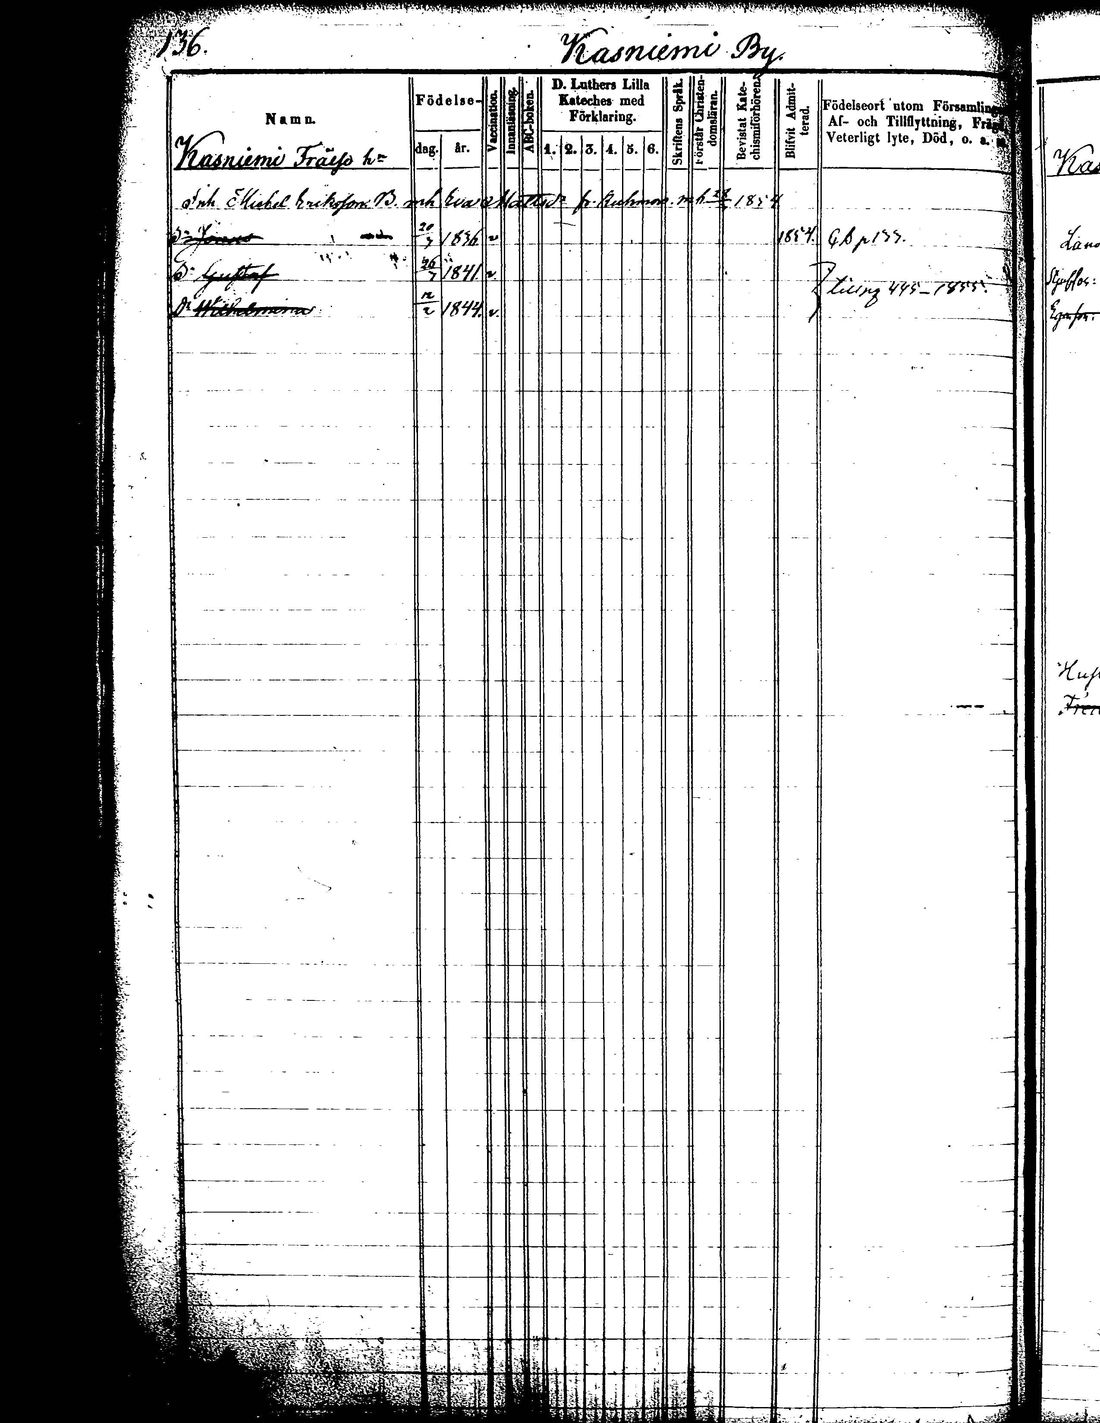 136.
Kasniemi By.
Namn.
Födelse-
dag.
år.
Vaccination.
Innanläsning.
ABC-boken.
D. Luthers Lilla
Kateches med
Förklaring.
1. 2. 3. 4. 5. 6.
Skriftens Språk.
Förstår Christen-
domsläran.
Bevistat Kate-
chismiförhören.
Blifvit Admit-
terad.
Födelseort utom Församling
Af- och Tillflyttning, Fräg
Veterligt lyte, Död, o. a.
Kasniemi Frälse
Inh. Michel Eriksson B. Eva fr. 1854
Dr Jonas 20 1836 v 1854. p 133.
Dr Gustaf 26/7 1841. v
445 - 1855.
Dr Wilhelmina 12/2 1844. v.
Kas